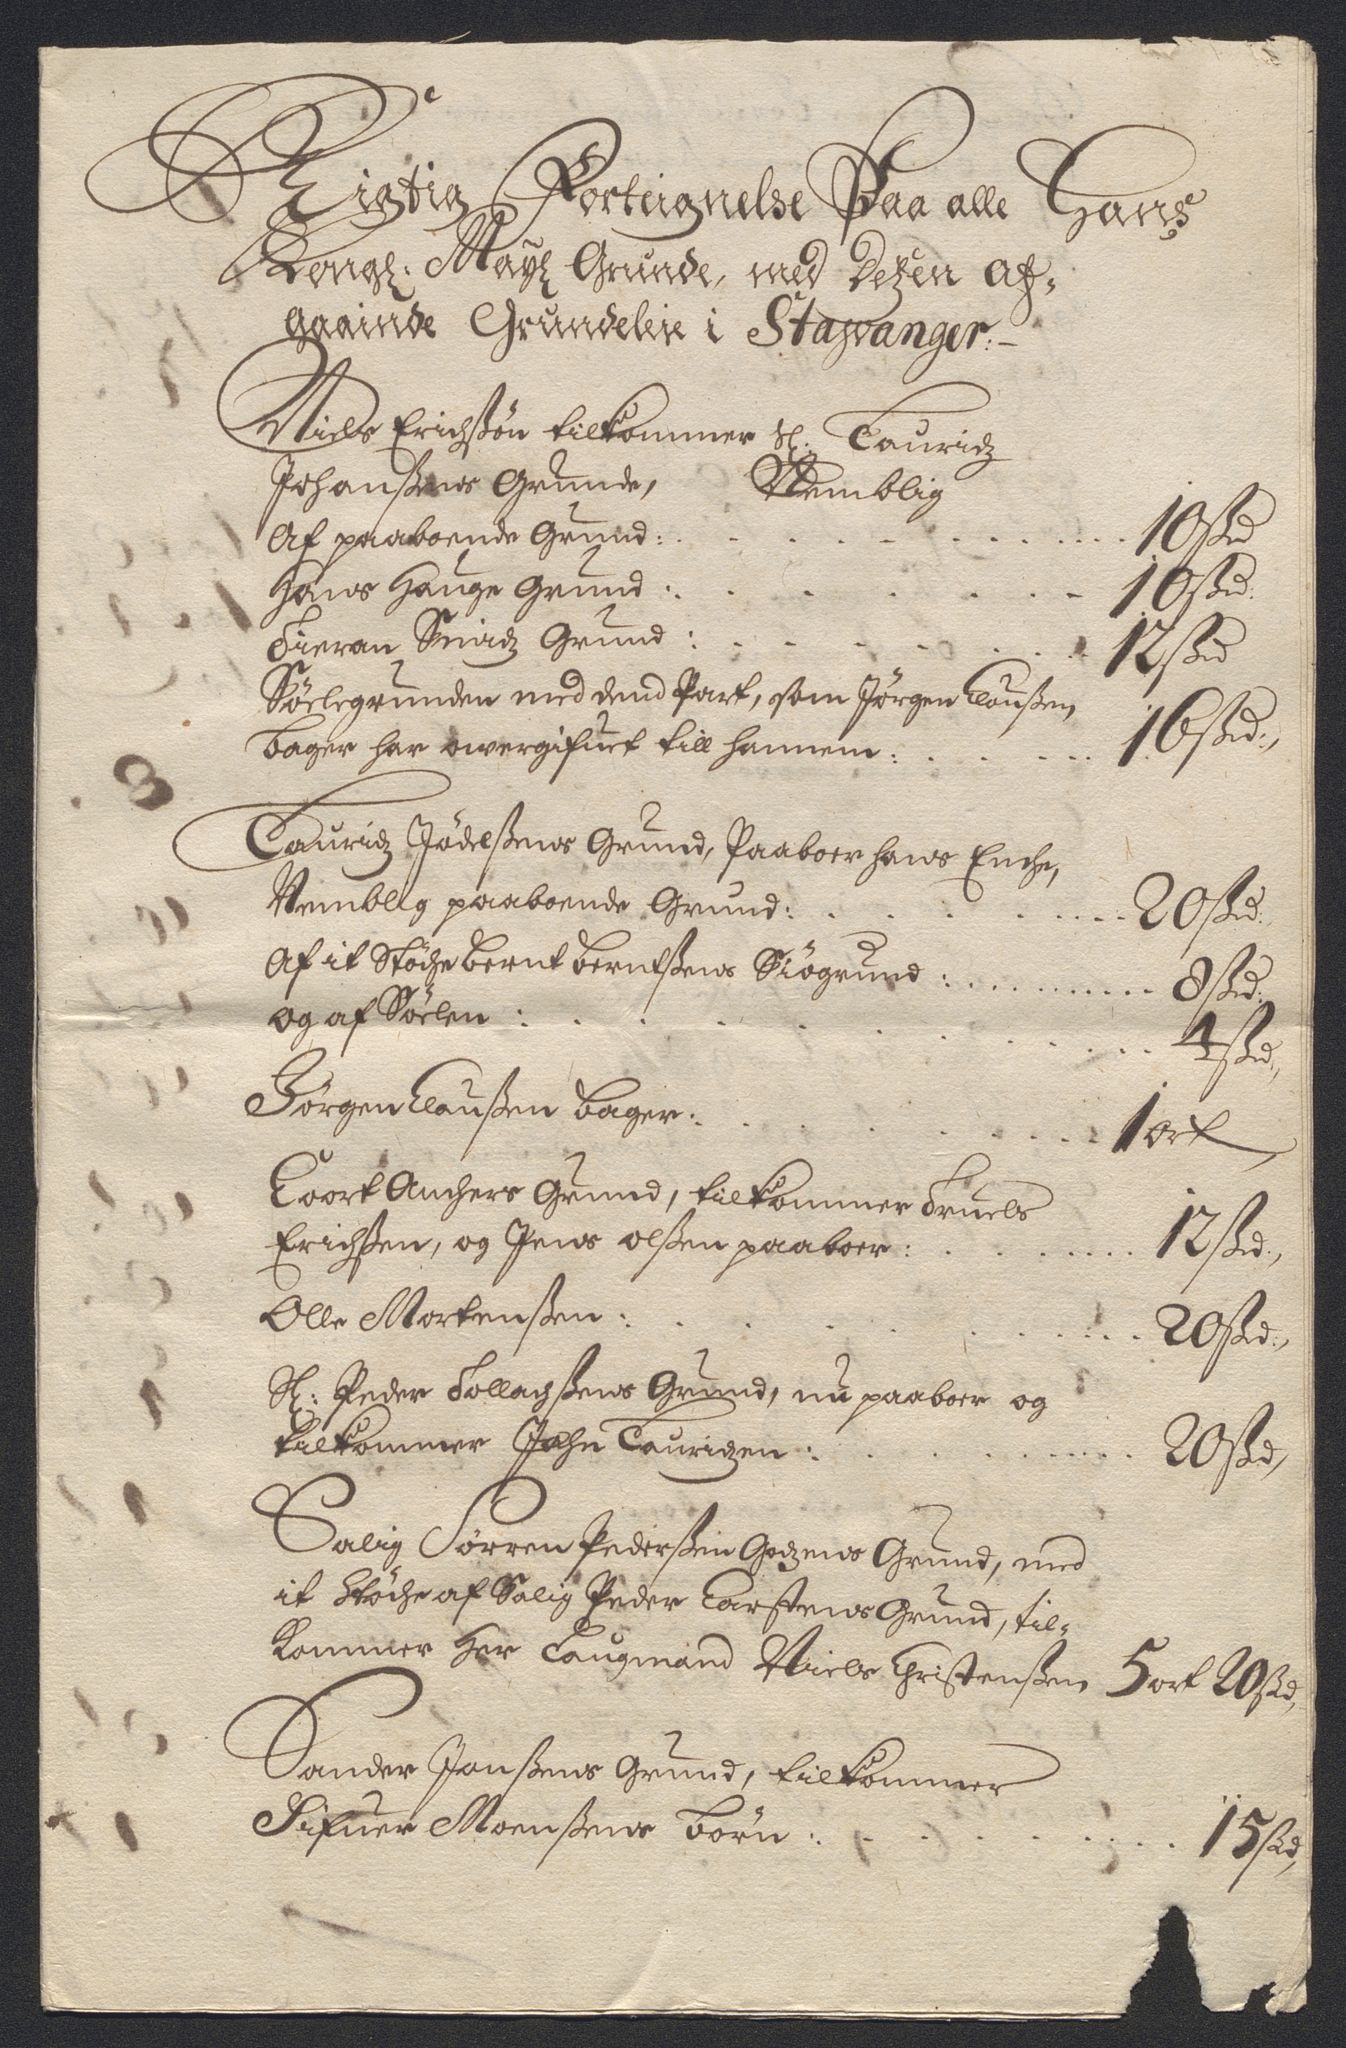 Rigtig Forteignelse Paa alle Hans
Kongl: Mayts Grunde, med deßen af-
gaainde Grundeleie i Stafvanger:-
Niels Erichßøn tilkommer Sl: Lauridz
Johanßens Grunde, Nemblig
Af paaboende Grund: 10 ßd
Hans Hauge Grund: 10 ßd:
Sieran Smidz Grund: 12 ßd
Søelegrunden med dend Part, som Jørgen Claußen
bager har owergifuet till hannem: 16 ßd:,
Lauridz Jødelßens Grund, Paaboer hans Enche,
Nemblig paaboende Grund: 20 ßd:
Af it Støche bernt berntßens Siøgrund: 8 ßd:
og af Søelen: 4 ßd,
Jørgen Claußen bager: 1 ort,
Coort Anchers Grund, tilkommer Truels
Erichßen, og Jens olßen paaboer: 12 ßd:,
Olle Mortenßen: 20 ßd:,
Sl: Peder Tollachßens Grund, nu paaboer og
tilkommer John Lauridzen: 20 ßd,
Salig Sørren Pederßen Godzens Grund, med
it Støche af Salig Peder Carstens Grund, til-
kommer Her Laugmand Niels Christenßen 5 ort 20 ßd,
Sander Janßens Grund, tilkommer
Sifuer Moenßens børn: 15 ßd,